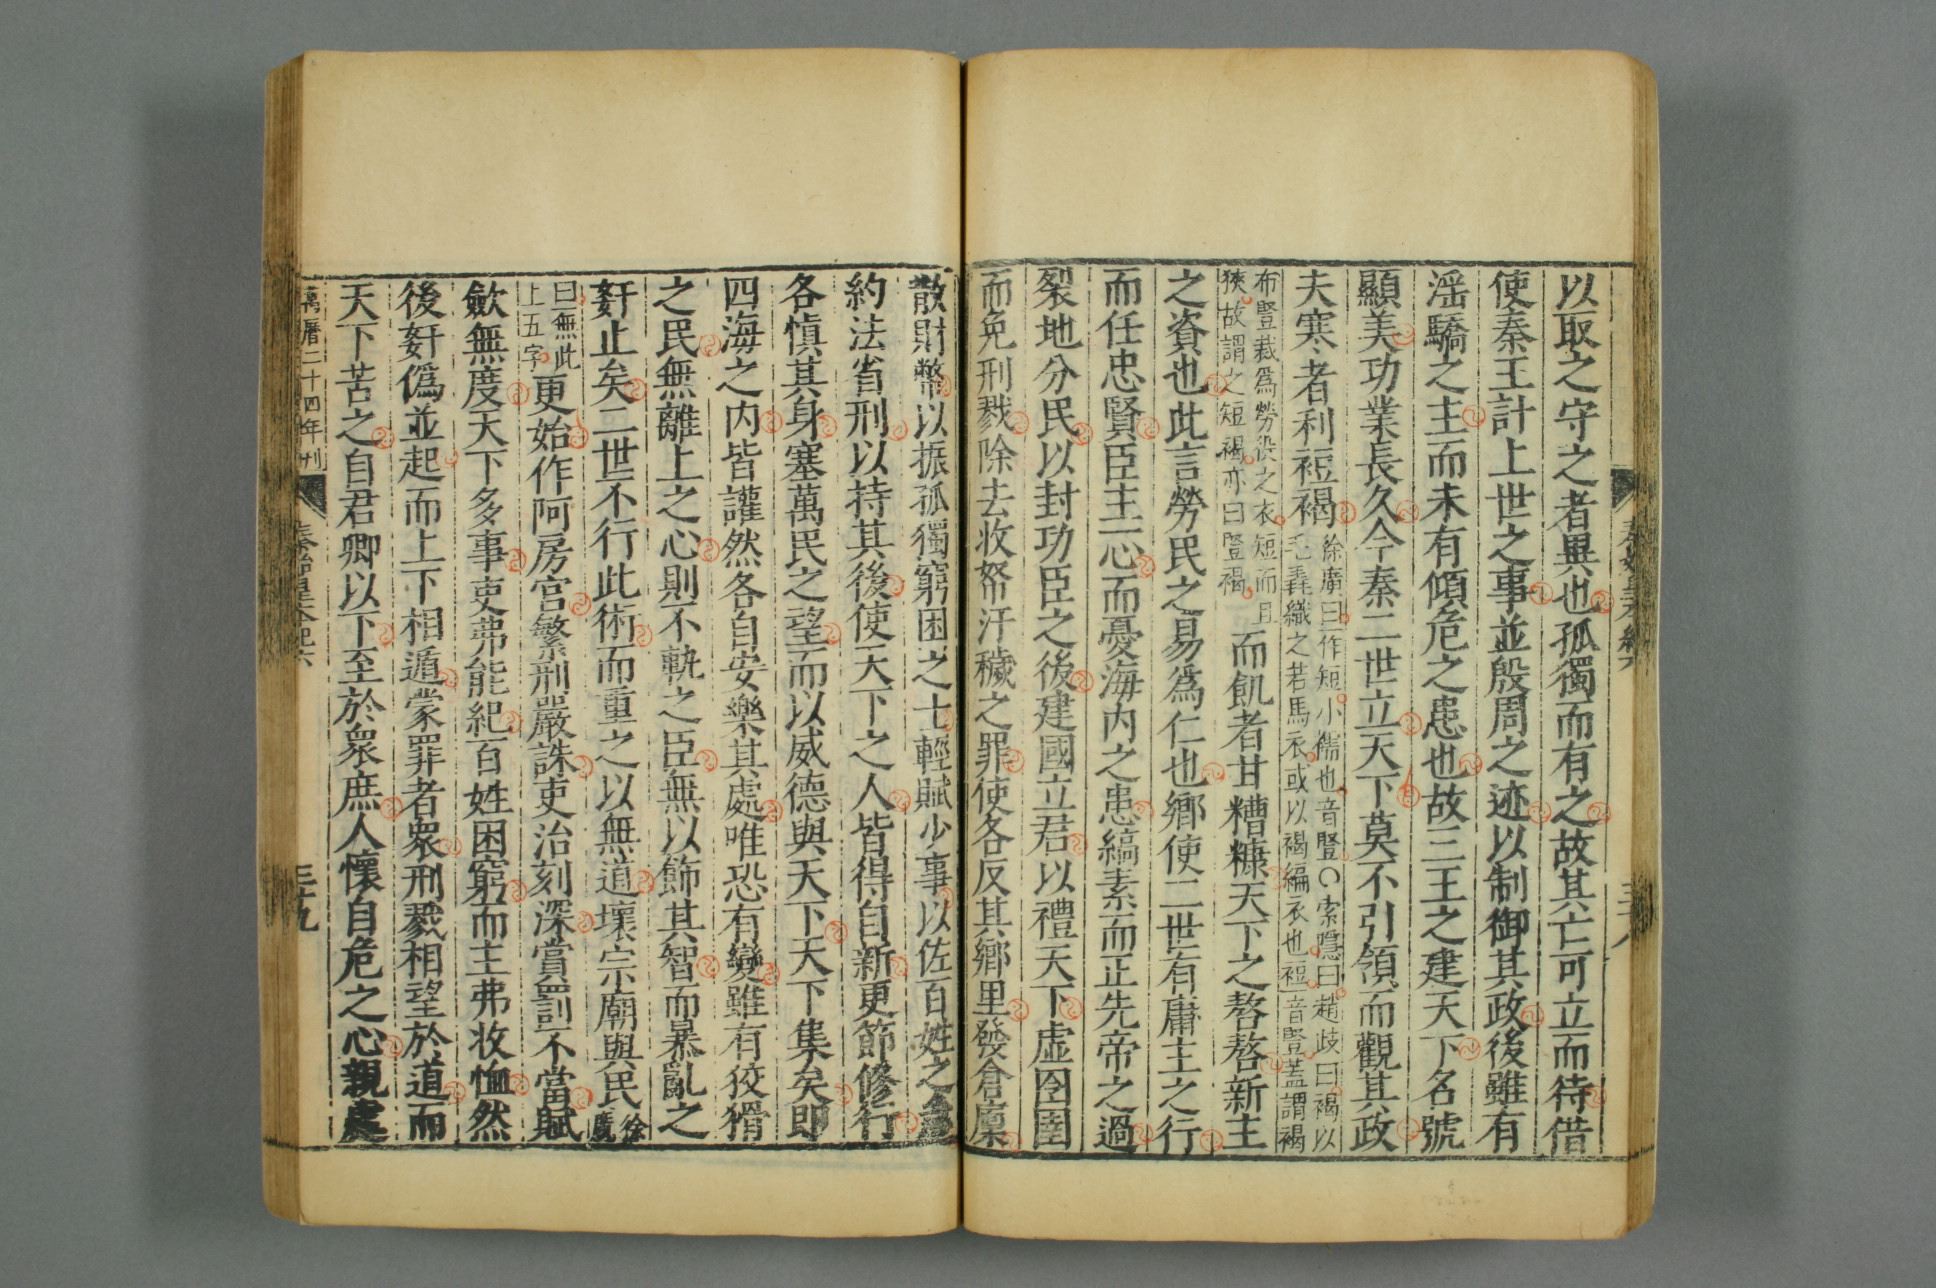 以取之守之者異也孤獨而有之故其亡可立而待借
使秦王計上世之事並殷周之迹以制御其政後雖有
淫驕之主而未有傾危之患也故三王之建天下名號
顯美功業長久今秦二世立天下莫不引領而觀其政
夫寒者利裋褐
徐廣曰一作短小襦也音豎○索隱曰趙歧曰褐以
毛毳織之若馬衣或以褐編衣也裋一音豎蓋謂褐
布豎裁爲勞役之衣短而且
狹故謂之短褐亦曰豎褐
而飢者甘糟糠天下之嗸嗸新主
之資也此言勞民之易爲仁也鄉使二世有庸主之行
而任忠賢臣主一心而憂海內之患縞素而正先帝之過
裂地分民以封功臣之後建國立君以禮天下虛囹圄
而免刑戮除去收帑汙穢之罪使各反其鄉里發倉廩
散財幣以振孤獨窮困之士輕賦少事以佐百姓之急
約法省刑以持其後使天下之人皆得自新更節修行
各慎其身塞萬民之望而以威德與天下天下集矣即
四海之內皆讙然各自安樂其處唯恐有變雖有狡猾
之民無離上之心則不軌之臣無以飾其智而暴亂之
姧止矣二世不行此術而重之以無道壞宗廟與民
徐廣
曰一無此
上五字
更始作阿房宫繁刑嚴誅吏治刻深賞罰不當賦
歛無度天下多事吏弗能紀百姓困窮而主弗收恤然
後姧僞並起而上下相遁蒙罪者衆刑戮相望於道而
天下苦之自君卿以下至於衆庶人懷自危之心親處
萬曆二十四年刊
秦始皇本紀六
三十九